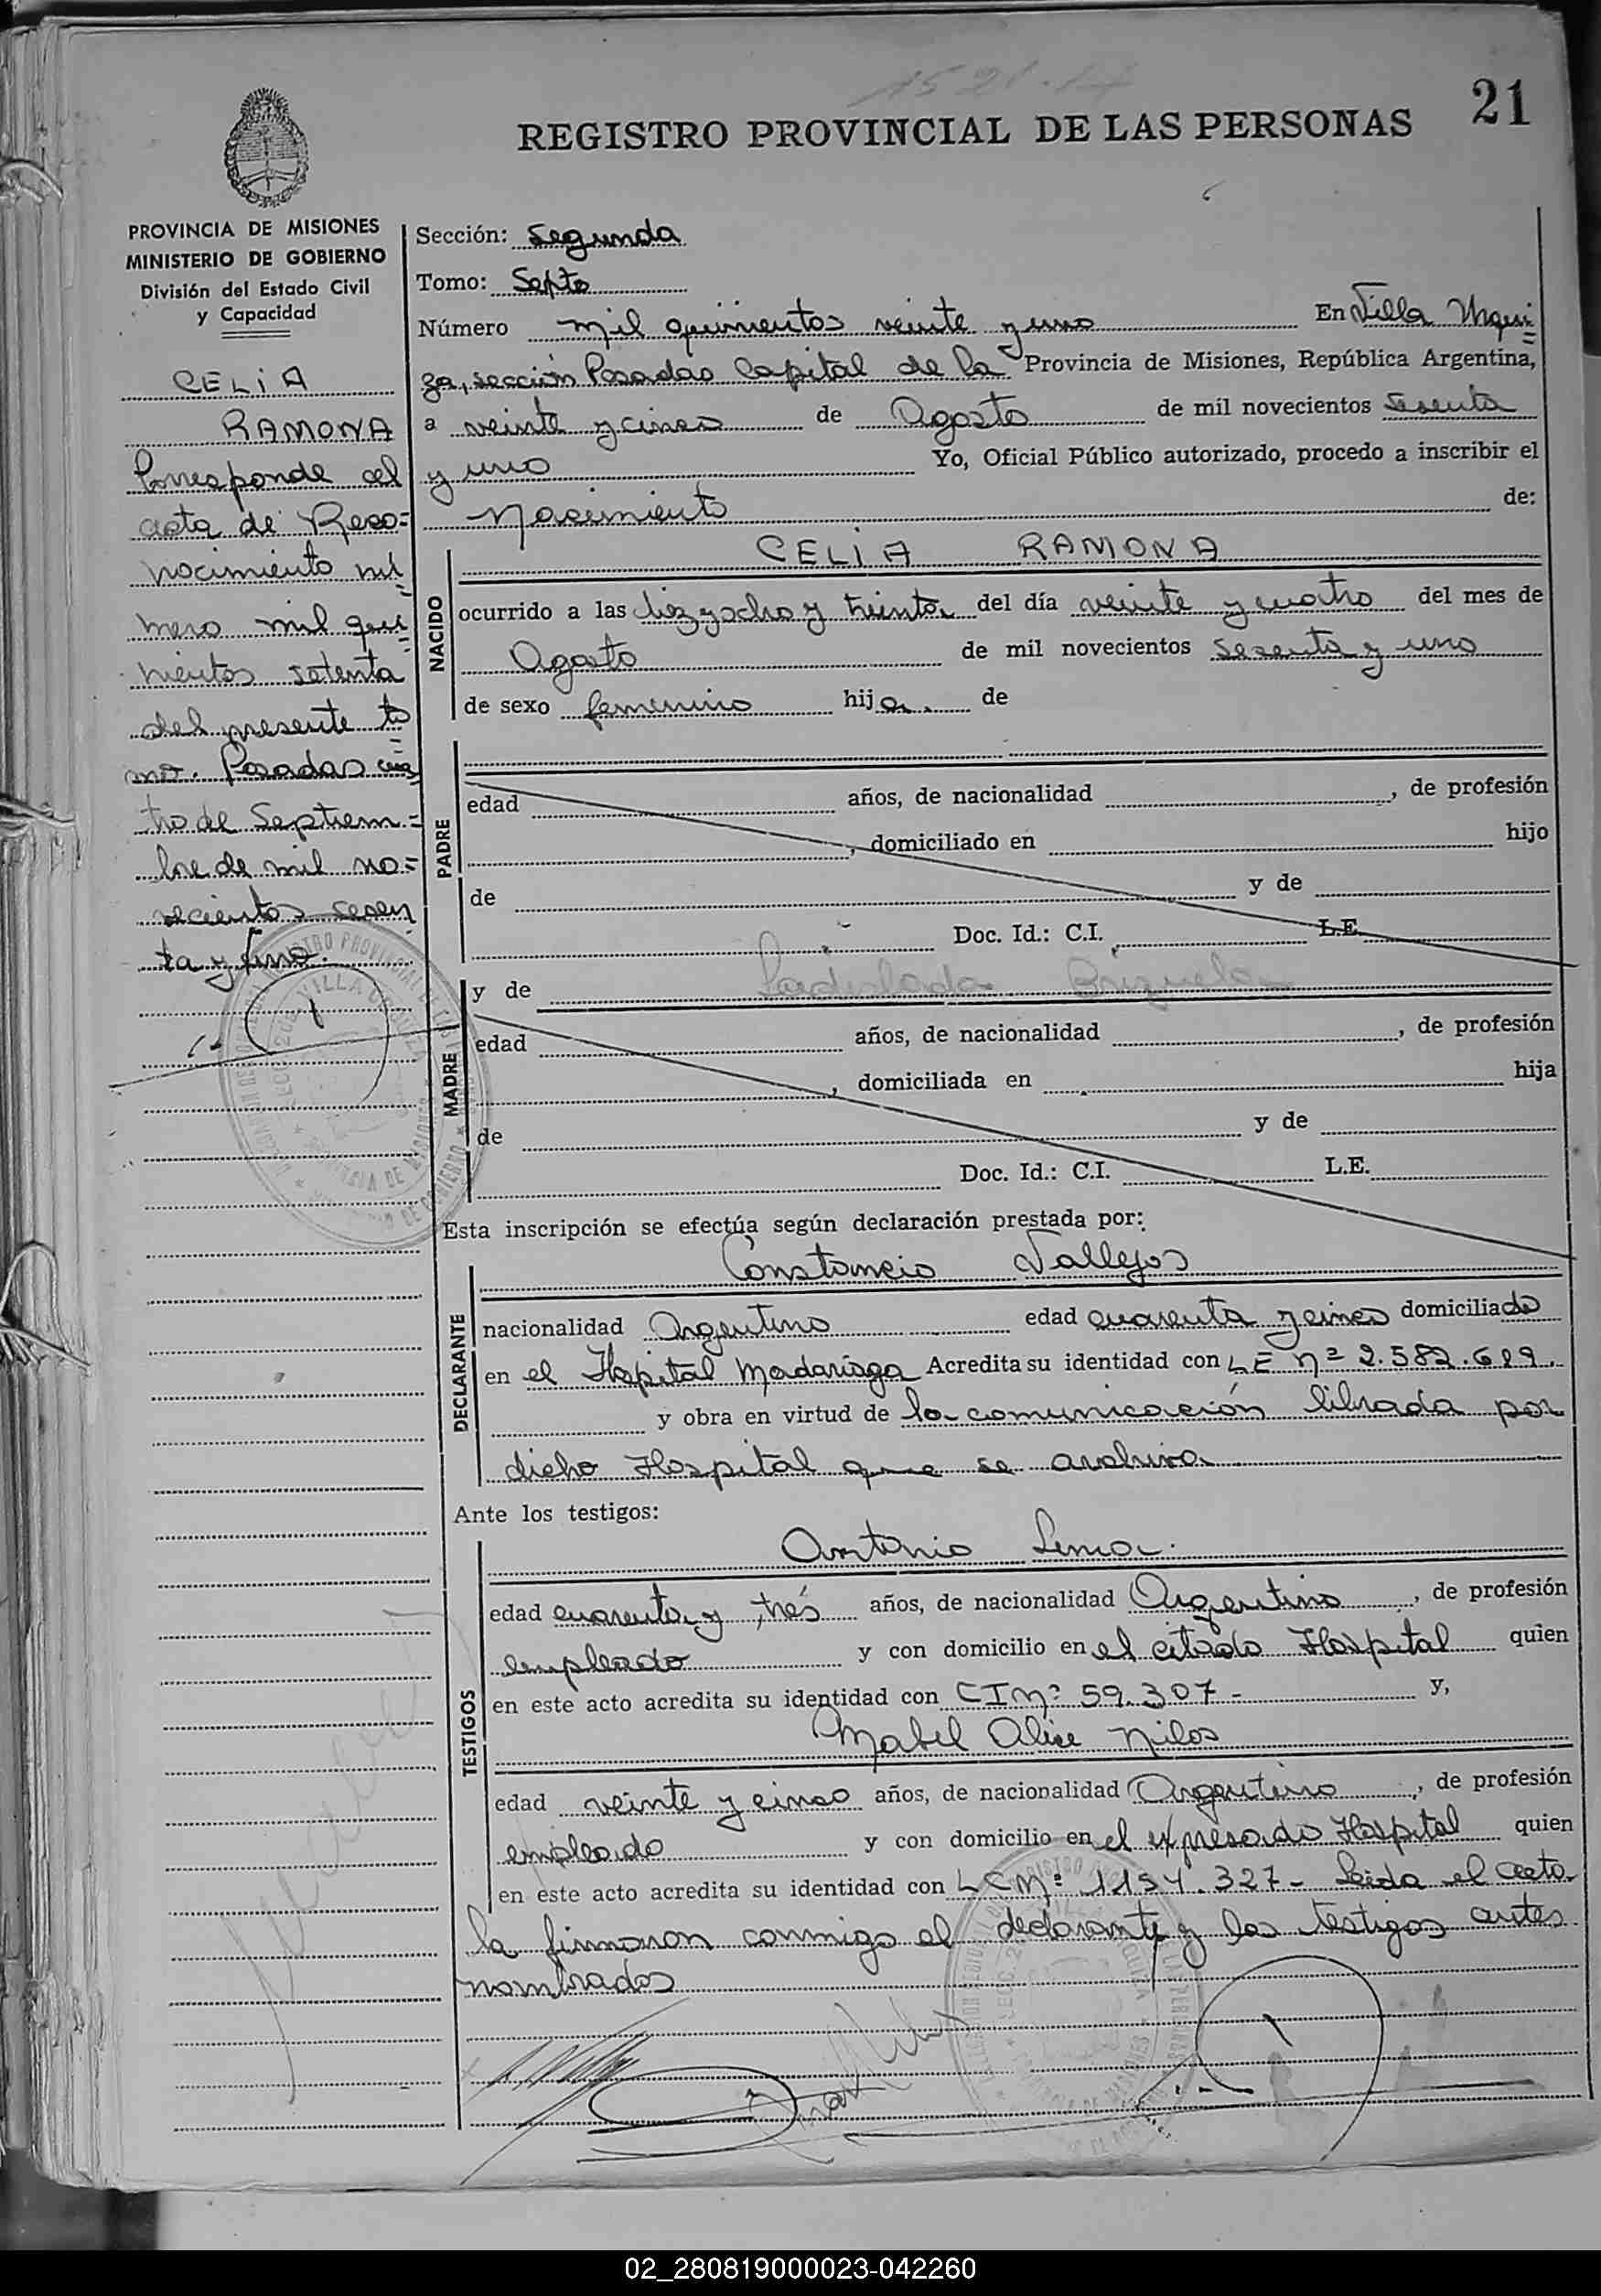 21
REGISTRO PROVINCIAL DE LAS PERSONAS
PROVINCIA DE MISIONES
MINISTERIO DE GOBIERNO
División del Estado Civil
y Capacidad
CELIA
RAMONA
Corresponde al
acta de Reco=
nocimiento nú
mero mil qui
nientos setenta
del presente to
mo. Posadas cua
tro de Septiem=
bre de mil no=
vecientos sesen
ta y uno.
Sección: Segunda
Tomo: Septo
Número mil quinientos veinte y uno En Villa Urqui
za, sección Posadas Capital de la Provincia de Misiones, República Argentina,
a veinte y cinco de Agosto de mil novecientos sesenta
y uno Yo, Oficial Público autorizado, procedo a inscribir el
Nacimiento de:
NACIDO
CELIA RAMONA
ocurrido a las diez y ocho y treinta del día veinte y cuatro del mes de
Agosto de mil novecientos sesenta y uno
de sexo femenino hija. de
PADRE
edad años, de nacionalidad , de profesión
, domiciliado en hijo
de y de
Doc. Id.: C.I. L.E.
MADRE
y de Ladislada Brizuela
edad años, de nacionalidad , de profesión
, domiciliada en hija
de y de
Doc. Id.: C.I. L.E.
Esta inscripción se efectúa según declaración prestada por:
DECLARANTE
Constancio Vallejos
nacionalidad Argentino edad cuarenta y cinco domiciliado
en el Hospital Madariaga Acredita su identidad con LE Nº 2.582.689.
y obra en virtud de la comunicación librada por
dicho Hospital que se archiva
Ante los testigos:
TESTIGOS
Antonio Lema.
edad cuarenta y trés años, de nacionalidad Argentino , de profesión
empleado y con domicilio en el citado Hospital quien
en este acto acredita su identidad con CI Nº 59.307- y,
Mabel Alice Nilos
edad veinte y cinco años, de nacionalidad Argentina , de profesión
empleada y con domicilio en el expresado Hospital quien
en este acto acredita su identidad con LC Nº 1194.327- Leida el acta
la firmaron conmigo el declarante y los testigos antes
nombrados
02_280819000023-042260